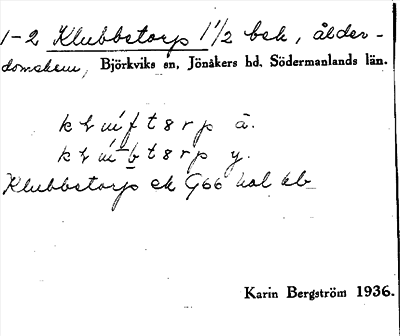 1-2 Klubbetorp 1 1/2 bek, ålder-
domshem, Björkviks sn, Jönåkers hd. Södermanlands län.
t s r p å.
t s r p y.
Klubbetorp ek G66 hal kb
Karin Bergström 1936.